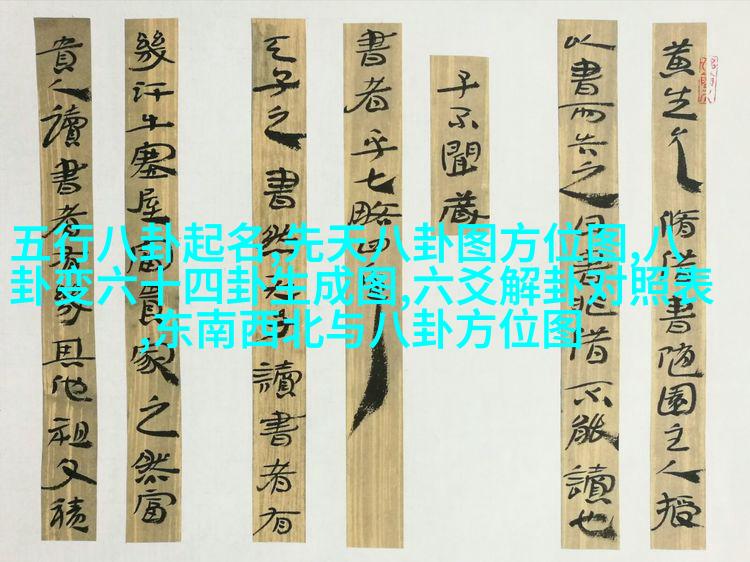 五行八卦起名,先天八卦图方位图,八
卦变六十四卦生成图,六爻解卦对照表
,东南西北与八卦方位图
黄生允脩借書随園主人授
以書而告之曰書非借不能讀也
子不聞藏
書者乎七略四
天子之書然天子讀書者有
幾汗牛塞屋富貴家之然富
貴人讀書者有幾其他祖父積